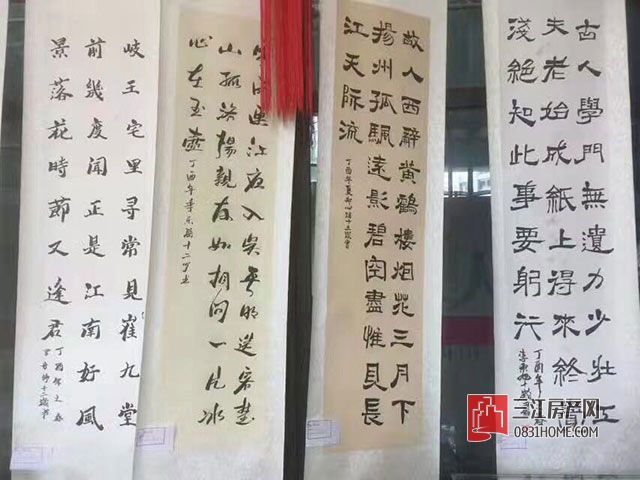 古人學問無遺力少壯工
夫老始成紙上得來終覺
淺絕知此事要躬行
丁酉年春
故人西辭黃鶴樓烟花三月下
揚州孤帆遠影碧空盡惟見長
江天際流
丁酉年夏
寒雨連江夜入吳平明送客楚
山孤洛陽親友如相問一片冰
心在玉壺
丁酉年
岐王宅里尋常見崔九堂
前幾度聞正是江南好風
景落花時節又逢君
三江房产网
0831HOME.COM